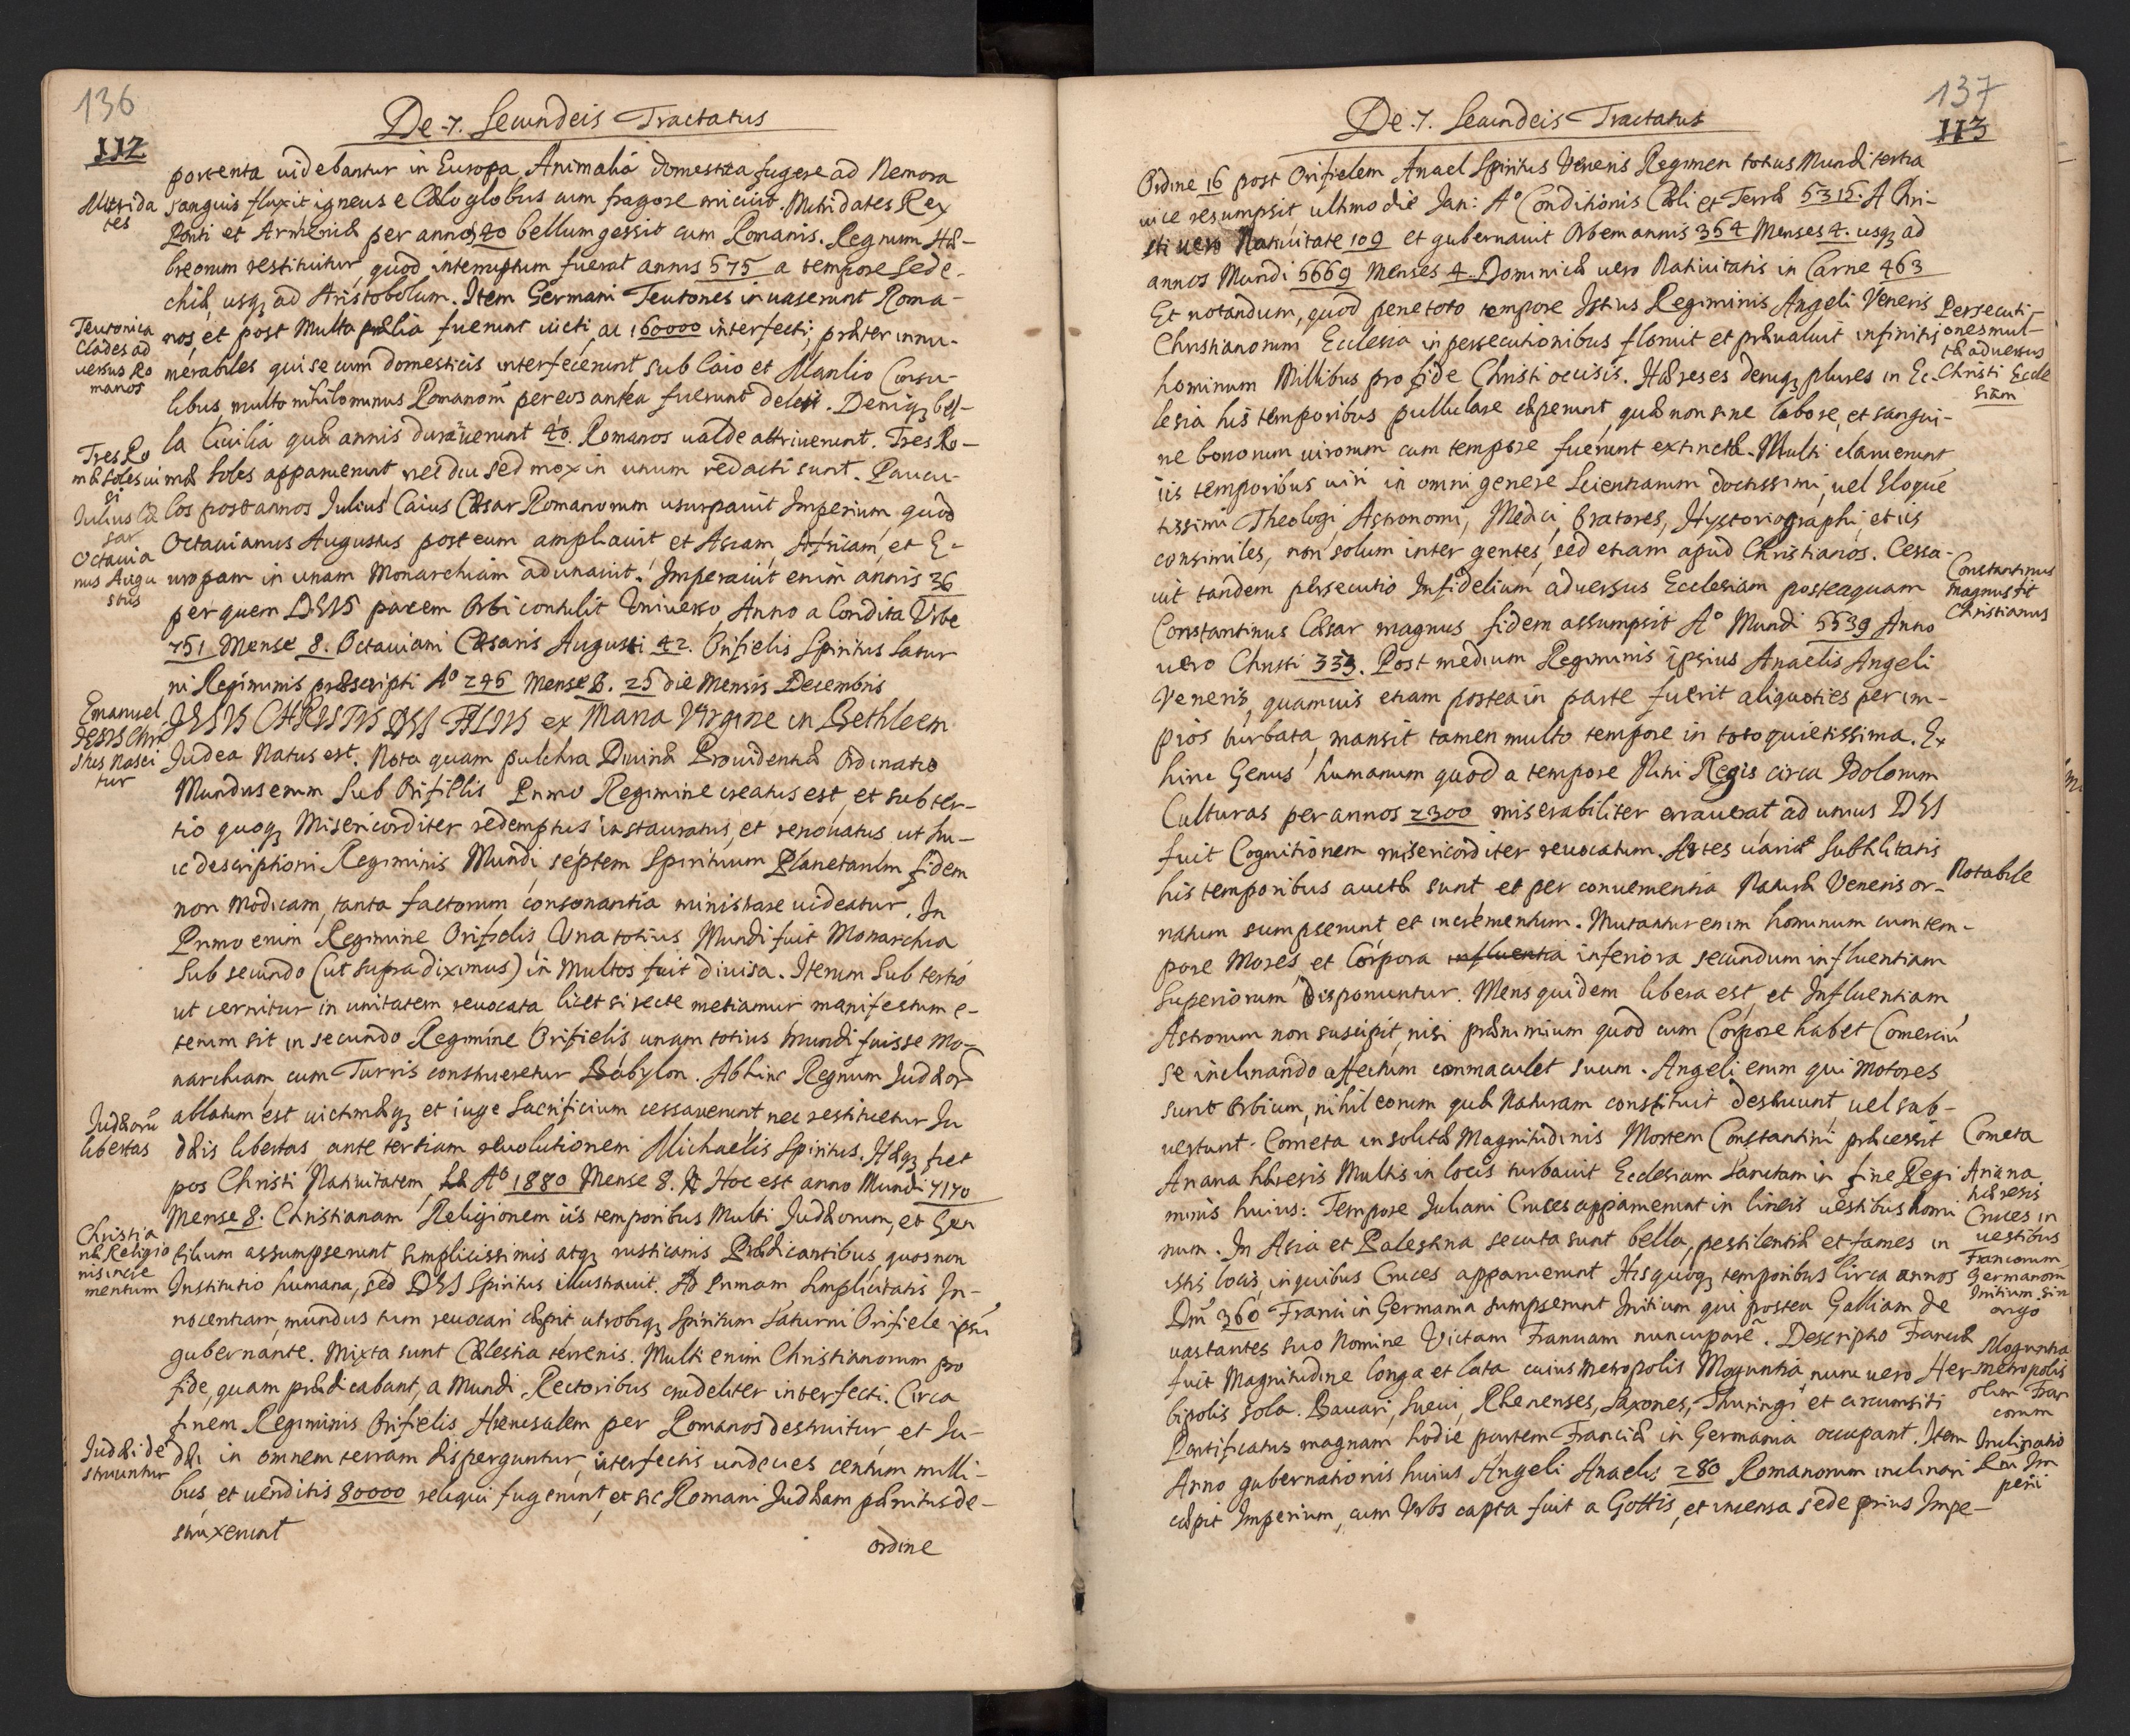 136
112
De 7. Secundeis Tractatus
portenta uidebantur in Europa, Animalia domestica fugere ad Nemora
sanguis fluxit igneus e Cælo globus cum fragore micuit. Mitridates Rex
Ponti et Armeniæ per annos 40 bellum gessit cum Romanis. Regnum Hæ-
breorum restituitur, quod interruptum fuerat annis 575 a tempore Sede-
chiæ usqȝ ad Aristobolum. Item Germani Teutones inuaserunt Roma-
nos, et post Multa prælia fuerunt uicti, ac 160000 interfecti; præter innu-
merabiles qui se cum domesticis interfecerunt sub Caio et Manlio Consu-
libus, multo nihilominus Romanoru per eos antea fuerunt deleti. Deniqȝ bel-
la Ciuilia quæ annis durauerunt 40. Romanos ualde attriuerunt. Tres Ro-
mæ Soles apparuerunt, nec diu sed mox in unum redacti sunt. Paucu-
los post annos Julius Caius Cæsar Romanorum usurpauit Imperium, quod
Octauianus Augustus post eum ampliauit et Asiam, Africam, et E-
uropam in unam Monarchiam adunauit. Imperauit enim annis 36
per quem DEUS pacem Orbi contulit Uniuerso, Anno a Condita Urbe
751 Mense 8. Octauiani Cæsaris Augusti 42. Orifielis Spiritus Satur
ni Regiminis præscripti Aº 246 Mense 8. 25 die Mensis Decembris
JESUS CHRISTUS DEI FILIUS ex Maria Virgine in Bethleem
Judea Natus est. Nota quam pulchra Diuinæ Prouidentiæ Ordinatio
Mundus enim Sub Orifielis Primo Regimine creatus est, et sub ter-
tio quoqȝ Misericorditer redemptus instauratus, et renouatus ut hu-
ic descriptioni Regiminis Mundi septem Spirituum Planetarum fidem
non Modicam, tanta factorum consonantia ministrare uideatur. In
Primo enim Regimine Orifielis Una totius Mundi fuit Monarchia
Sub secundo (ut supra diximus) in Multos fuit diuisa. Iterum Sub tertio
ut cernitur in unitatem reuocata, licet si recte metiamur manifestum e-
tenim sit in secundo Regimine Orifielis unam totius Mundi fuisse Mo-
narchiam, cum Turris construeretur Babylon. Abhinc Regnum Judæor
ablatum est uictimæqȝ et iuge Sacrificium cessauerunt, nec restituetur Ju
dæis libertas ante tertiam reuolutionem Michaelis Spiritus. Hæqȝ fiet
pos Christi Natiuitatem Aº 1880 Mense 8. Hoc est anno Mundi 7170
Mense 8. Christianam Religionem iis temporibus Multi Judæorum, et Gen
tilium assumpserunt simplicissimis atqȝ rusticanis Prædicantibus, quos non
Institutio humana, sed DEI Spiritus illustrauit. Ad Primam Simplicitatis In-
nocentiam, mundus tum reuocari cæpit utrobiqȝ Spiritum Saturni Orifiele ipsu
gubernante. Mixta sunt Cælestia terrenis. Multi enim Christianorum pro
fide, quam prædicabant, a Mundi Rectoribus crudeliter interfecti. Circa
finem Regiminis Orifielis Hierusalem per Romanos destruitur, et Ju-
dæi in omnem terram disperguntur, interfectis undecies centum milli-
bus et uenditis 80000 reliqui fugerunt, et sic Romani Judæam pænitus de-
struxerunt
ordine
Mitrida
tes
Teutonica
clades ad
uersus Ro
manos
Tres Ro
mæ Soles ui
si
Julius Cæ
sar
Octauia
nus Augu
stus
Emanuel
JESUS Chri
stus nasci
tur
Judæoru
libertas
Christia
næ Religio
nis incre
mentum
Judæi de
struuntur
137
113
De 7. Secundeis Tractatus
Ordine 16 post Orifielem Anael Spiritus Veneris Regimen totius Mundi tertia
uice resumpsit ultimo die Jan: Aº Conditionis Cæli et Terræ 5315. A Chri-
sti uero Natiuitate 109 et gubernauit Orbem annis 354 Menses 4. usqȝ ad
annos Mundi 5669 Menses 4. Dominicæ uero Natiuitatis in Carne 463
Et notandum, quod pene toto tempore Istius Regiminis Angeli Veneris
Christianorum Ecclesia in persecutionibus floruit et præualuit infinitis
hominum Millibus pro fide Christi occisis. Hæreses deniqȝ plures in Ec-
lesia his temporibus pullulare cæperunt, quæ non sine labore, et sangui-
ne bonorum uirorum cum tempore fuerunt extinctæ. Multi claruerunt
iis temporibus uiri in omni genere Scientiarum doctissimi, uel Eloque
tissimi Theologi, Astronomi, Medici, Oratores, Hystoriographi, et iis
consimiles, non solum inter gentes, sed etiam apud Christianos. Cessa-
uit tandem persecutio Infidelium aduersus Ecclesiam posteaquam
Constantinus Cæsar magnus fidem assumpsit Aº Mundi 5539 Anno
uero Christi 333. Post medium Regiminis ipsius Anaelis Angeli
Veneris, quamuis etiam postea in parte fuerit aliquoties per im-
pios turbata, mansit tamen multo tempore in toto quietissima. Ex
hinc Genus humanum quod a tempore Nini Regis circa Idolorum
Culturas per annos 2300 miserabiliter errauerat, ad unius DEI
fuit Cognitionem misericorditer reuocatum. Artes uariæ Subtilitatis
his temporibus auctæ sunt et per conuenientia Naturæ Veneris or-
natum sumpserunt et incrementum. Mutantur enim hominum cum tem-
pore Mores, et Corpora influentia inferiora secundum influentiam
Superiorum disponuntur. Mens quidem libera est, et Influentiam
Astrorum non suscipit, nisi prænimium quod cum Corpore habet Comerciu
se inclinando affectum commaculet suum. Angeli enim qui Motores
sunt Orbium, nihil eorum quæ Naturam constituit destruunt, uel sub-
uertunt. Cometa insolitæ Magnitudinis Mortem Constantini præcessit
Ariana hæresis Multis in locis turbauit Ecclesiam Sanctam in fine Regi
minis huius: Tempore Juliani Cruces apparuerunt in lineis uestibus homi
num. In Asia et Palestina secuta sunt bella, pestilentiæ et fames in
istis locis, in quibus Cruces apparuerunt His quoqȝ temporibus Circa annos
Dni 360 Franci in Germania sumpserunt Initium qui postea Galliam de
uastantes suo Nomine Victam Franciam nuncuparē. Descriptio Franciæ
fuit Magnitudine longa et lata cuius Metropolis Moguntia nunc uero Her
bipolis sola. Bauari, Sueui, Rhenenses, Saxones, Thuringi et circumsiti
Pontificatus magnam hodie partem Franciæ in Germania occupant. Item
Anno gubernationis huius Angeli Anaelis 280 Romanorum inclinari
cæpit Imperium, cum Urbs capta fuit a Gottis, et incensa sede prius Impe-
Persecuti-
ones mul-
tæ aduersus
Christi Eccle
siam
Constantinus
magnus fit
Christianus
Notabile
Cometa
Ariana
hæresis
Cruces in
uestibus
Francorum
Germanoru
Initium siu
origo
Moguntia
metropolis
olim Fran
corum
Inclinatio
Ro: Im
perii